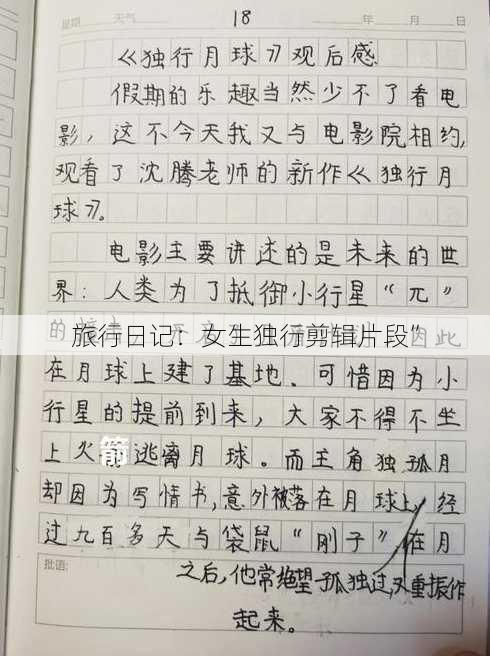 星期 天气 18 年 月 日
《独行月球》观后感
假期的乐趣当然少不了看电
影，这不今天我又与电影院相约，
观看了沈腾老师的新作《独行月
球》。
电影主要讲述的是未来的世
界：人类为了抵御小行星“π”
旅行日记：女生独行剪辑片段”
的 因此
在月球上建了基地、可惜因为小
行星的提前到来，大家不得不坐
上火箭逃离月球。而主角独孤月
却因为写情书，意外被落在月球上，经
过九百多天与袋鼠“刚子”在月
批语：
之后，他常绝望孤独过，又重振作
起来。